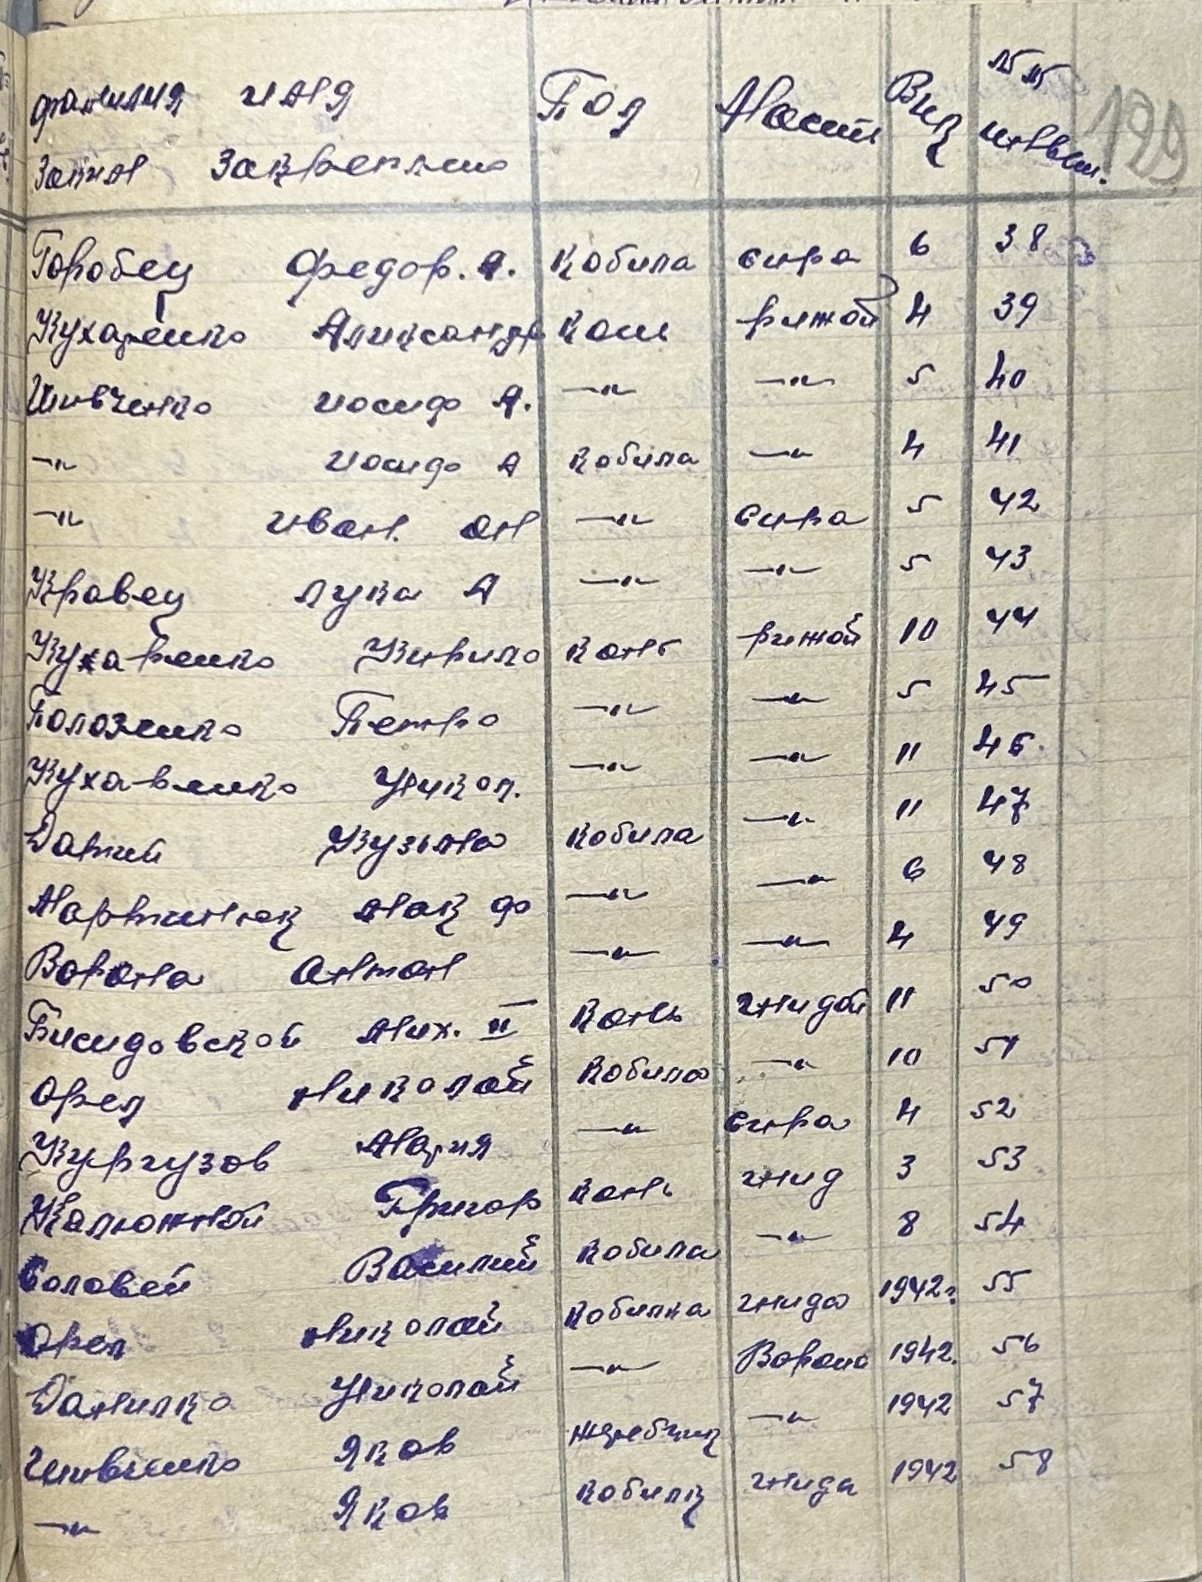 фамилия имя Пол Масти Вик №№
заким закреплино инвен. 199
Горобец Федор. А. Кобила сира 6 38
Кухаренко Аликсандр Конь рижой 4 39
Шивченко иосиф А. —"— —"— 5 40
—"— иосиф А Кобила —"— 4 41
—"— иван. ан —"— сира 5 42
Кравец лука А —"— —"— 5 43
Кухаренко Кирило Конь рижой 10 44
Положенко Петро —"— —"— 5 45
Кухаренко Никол. —"— —"— 11 46.
Кузьма Кобила —"— 11 47
Мартинюк Мак ф —"— —"— 6 48
Ворона антон —"— —"— 4 49
Бисидовской Мих. II Конь гнидой 11 50
Орел николай Кобила —"— 10 51
Кургузов Мария —"— сира 4 52
Калюжной Григор Конь гнид 3 53
Соловей Василий Кобила —"— 8 54
Орел николай Кобилка гнида 1942г. 55
Данилко Николай —"— Ворона 1942. 56
Шивченко Яков жеребчик —"— 1942 57
—"— Яков Кобилк гнида 1942 58